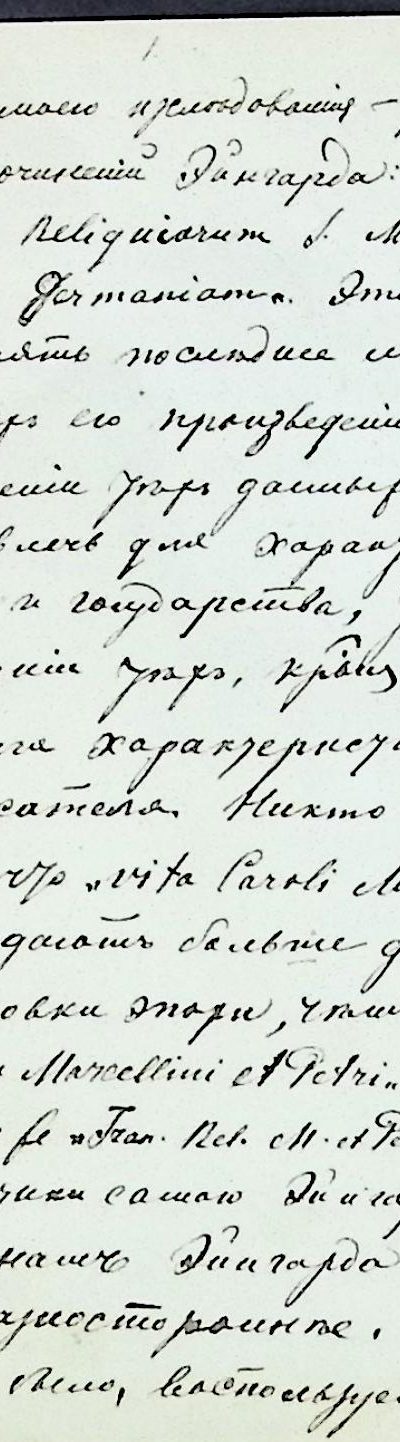 моего изслѣдованія –
очиненій Эйнгарда:
Reliquiarum S. M
Germaniam". Эти
ять последнее м
его произведеній
еніи трехъ данныхъ
влечь для харак
и государства,
ніи трехъ, кромѣ
га характерист
сателя. Никто
что „vita Caroli M
даютъ больше д
овки эпохи, чѣм
Marcellini et Petri"
fe „Tran. Rel. M. et Pe
тики самого Эйнга
намъ Эйнгарда
азностороннѣе.
было, воспользуе